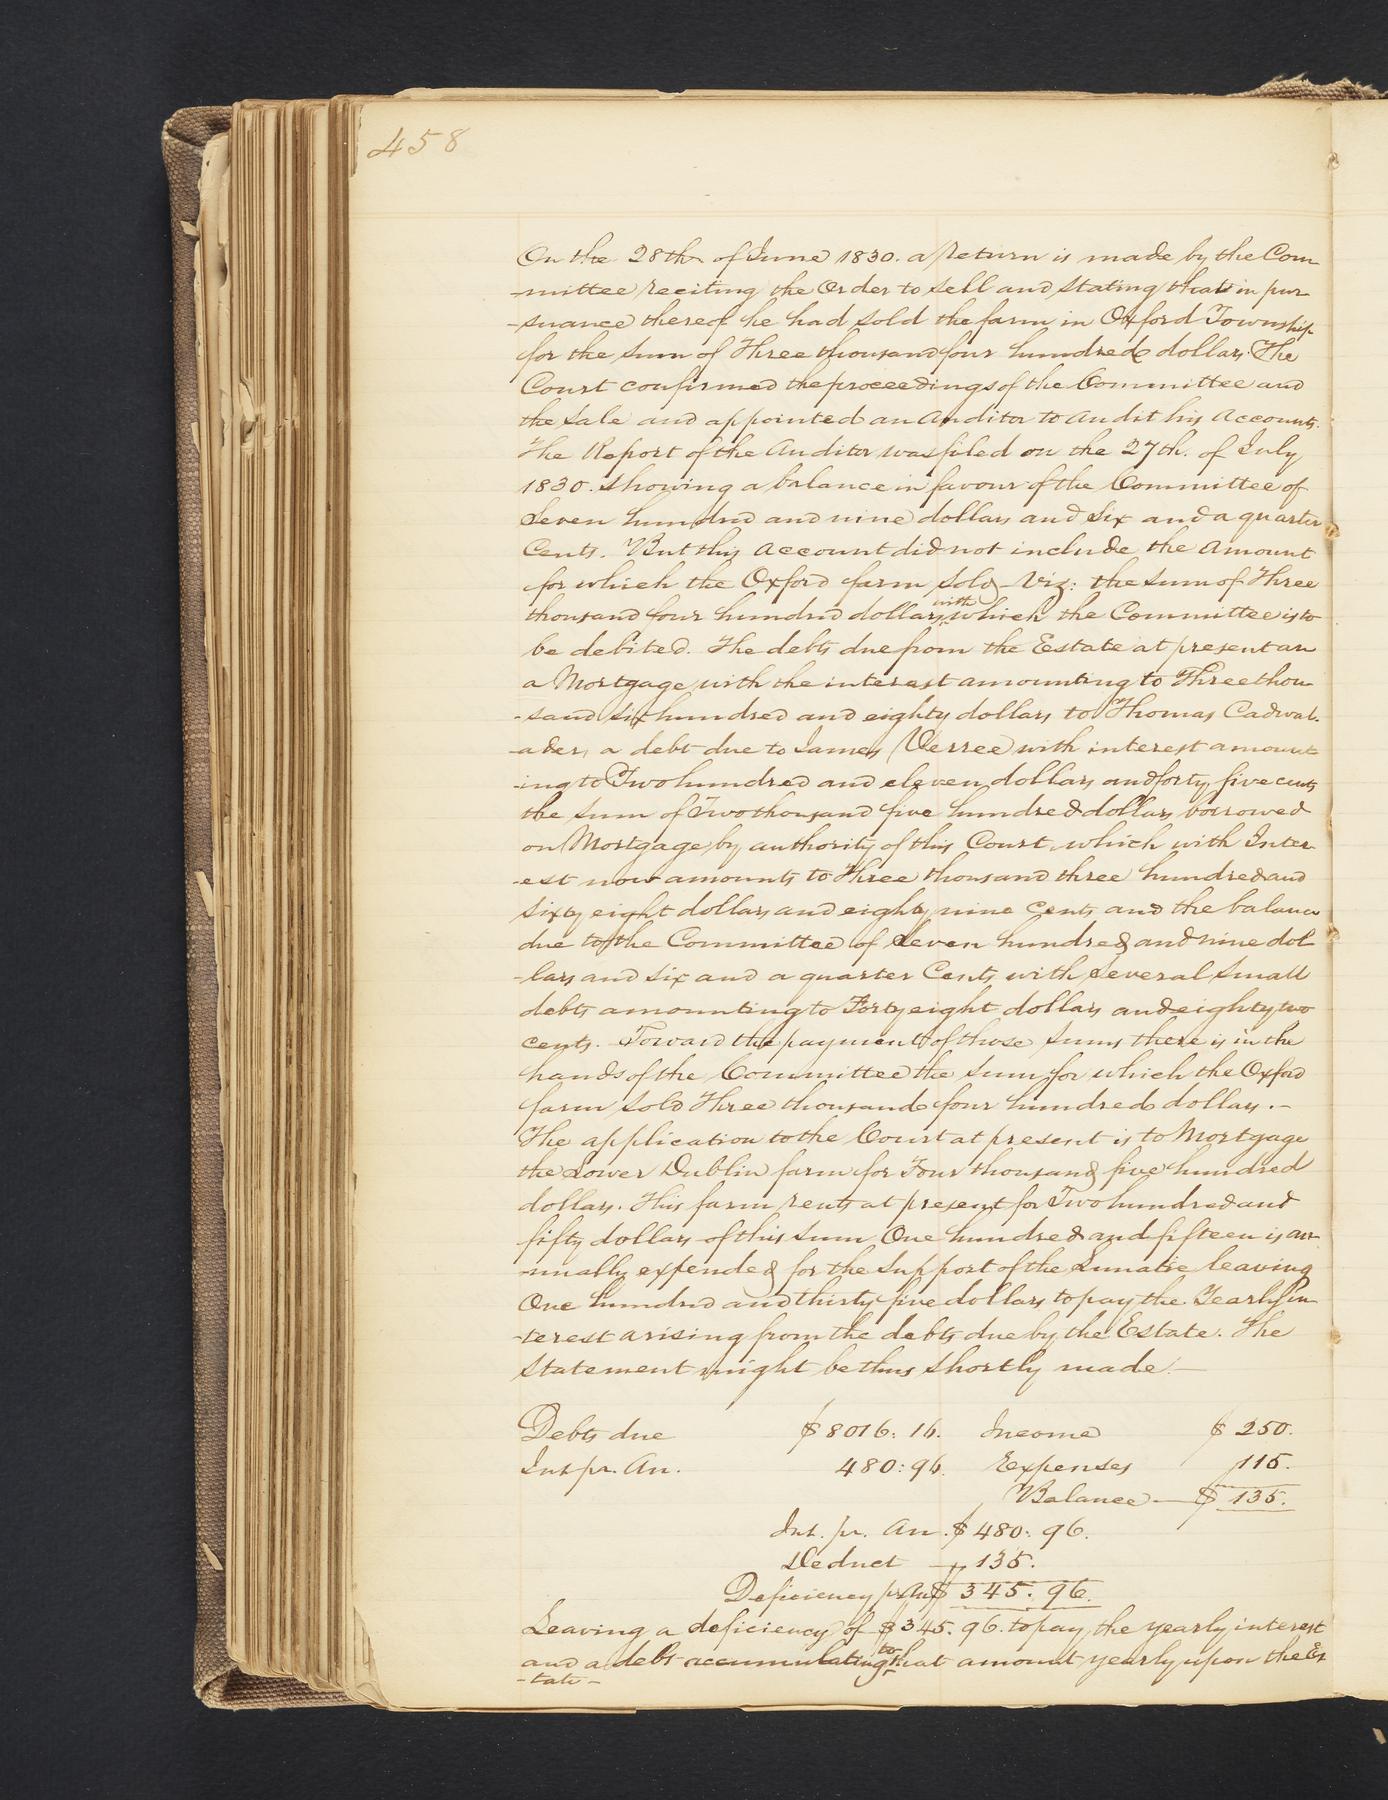 458
On the 28th of June 1830. a return is made by the Com
-mittee reciting the Order to sell and stating that in pur
-suance thereof he had sold the farm in Oxford Township
for the sum of Three thousand four hundred dollars. The
Court confirmed the proceedings of the Committee and
the sale and appointed an Auditor to audit his Accounts.
The Report of the Auditor was filed on the 27th. of July
1830. showing a balance in favour of the Committee of
Seven hundred and nine dollars and six and a quarter
Cents. But this Account did not include the Amount
for which the Oxford farm sold - Viz: the sum of Three
thousand four hundred dollars with which the Committee is to
be debited. The debts due from the Estate at present are
a Mortgage with the interest amounting to Three thou
-sand six hundred and eighty dollars to Thomas Cadwal-
-ader, a debt due to James Verree with interest amount
-ing to Two hundred and eleven dollars and forty five cents
the sum of Two thousand five hundred dollars borrowed
on Mortgage by authority of this Court, which with Inter
-est now amounts to Three thousand three hundred and
sixty eight dollars and eighty nine Cents and the balance
due to the Committee of Seven hundred and nine dol
-lars and six and a quarter Cents with several small
debts amounting to Forty eight dollars and eighty two
cents. Toward the payment of those sums there is in the
hands of the Committee the sum for which the Oxford
farm sold Three thousand four hundred dollars. -
The application to the Court at present is to Mortgage
the Lower Dublin farm for Four thousand five hundred
dollars. This farm rents at present for Two hundred and
fifty dollars of this sum One hundred and fifteen is an
-nually expended for the support of the Lunatic leaving
One hundred and thirty five dollars to pay the Yearly in
-terest arising from the debts due by the Estate. The
statement might be thus shortly made: -
Debts due $8016: 16. Income $ 250.
Int. pr. An. 480: 96. Expenses 115.
Balance - $ 135.
Int. pr. An. $480: 96.
Deduct - 135.
Deficiency pr. An $ 345. 96.
Leaving a deficiency of $345. 96. to pay the yearly interest
and a debt accumulating to that amount yearly upon the Es
-tate -